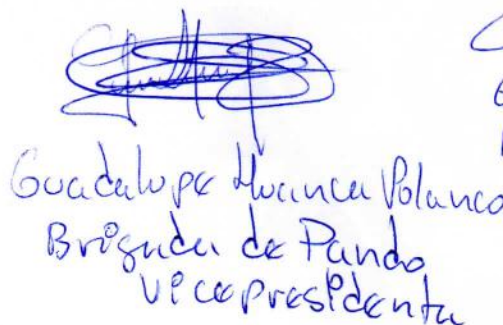 Guadalupe Huanca Polanco
Brigada de Pando
Vicepresidenta